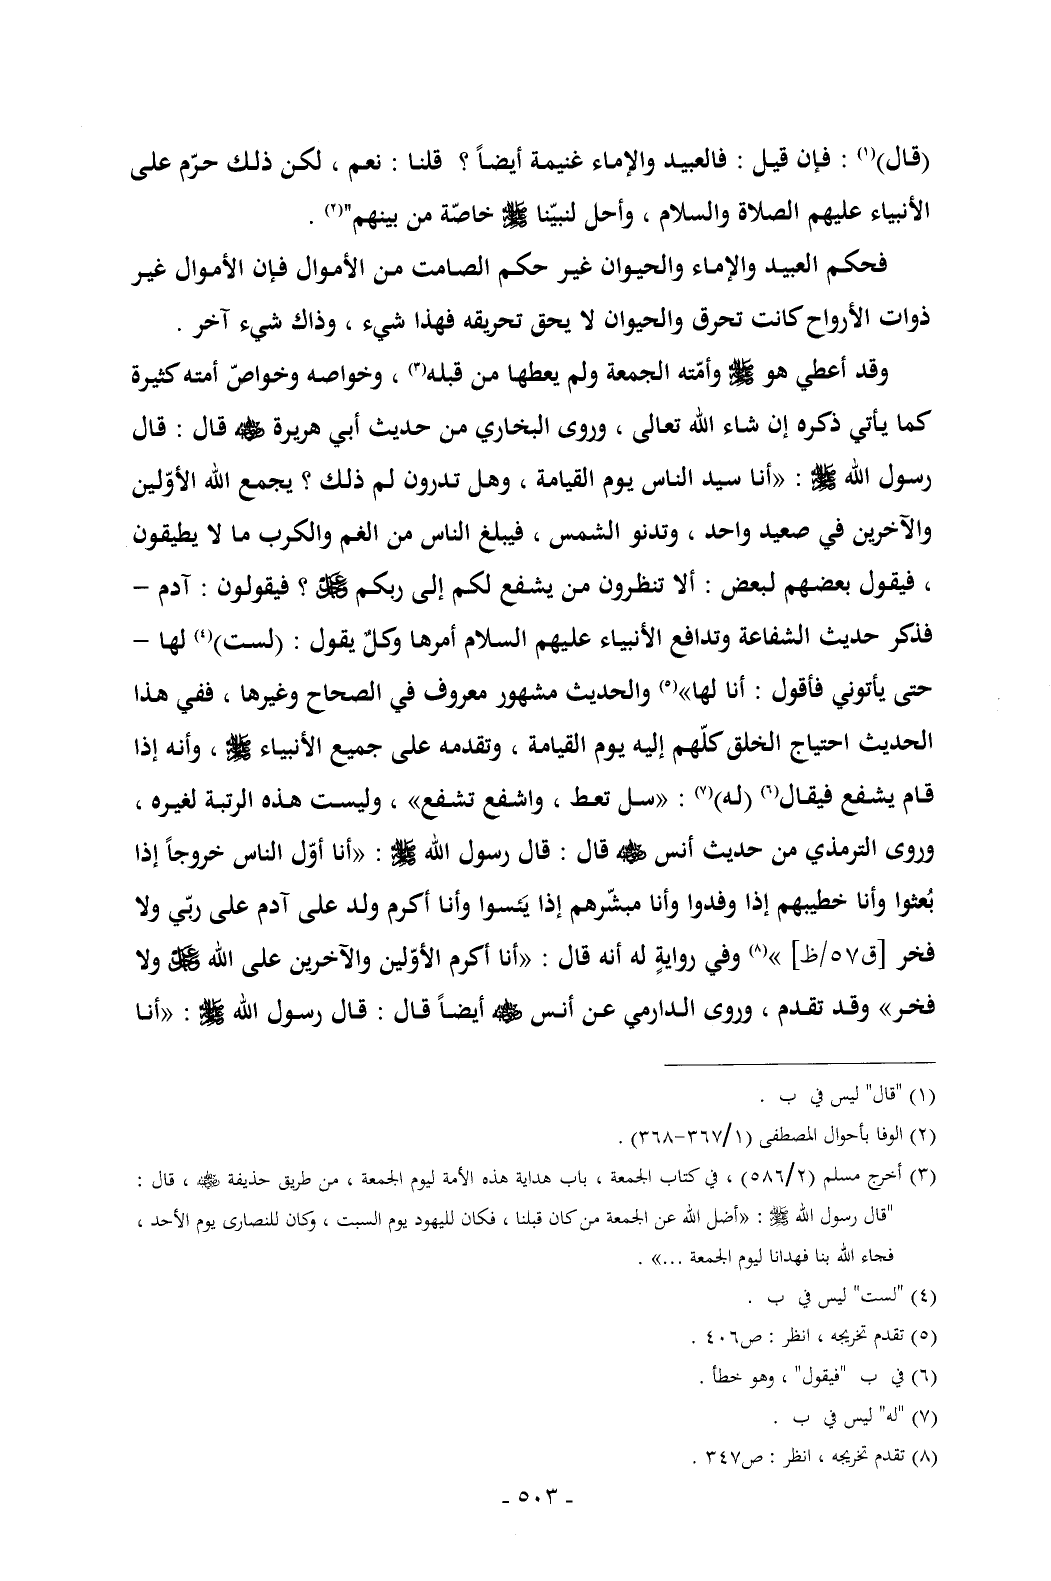 (قال)(١) : فإن قيل : فالعبيد والإماء غنيمة أيضاً ؟ قلنا : نعم ، لكن ذلك حرّم على
الأنبياء عليهم الصلاة والسلام ، وأحل لنبيّنا ﷺ خاصّة من بينهم"(٢) .
فحكم العبيد والإماء والحيوان غير حكم الصامت من الأموال فإن الأموال غير
ذوات الأرواح كانت تحرق والحيوان لا يحق تحريقه فهذا شيء ، وذاك شيء آخر .
وقد أعطي هو ﷺ وأمّته الجمعة ولم يعطها من قبله(٣) ، وخواصه وخواصّ أمته كثيرة
كما يأتي ذكره إن شاء الله تعالى ، وروى البخاري من حديث أبي هريرة ﵁ قال : قال
رسول الله ﷺ : «أنا سيد الناس يوم القيامة ، وهل تدرون لم ذلك ؟ يجمع الله الأوّلين
والآخرين في صعيد واحد ، وتدنو الشمس ، فيبلغ الناس من الغم والكرب ما لا يطيقون
، فيقول بعضهم لبعض : ألا تنظرون من يشفع لكم إلى ربكم ﷻ ؟ فيقولون : آدم –
فذكر حديث الشفاعة وتدافع الأنبياء عليهم السلام أمرها وكلٌ يقول : (لست)(٤) لها –
حتى يأتوني فأقول : أنا لها»(٥) والحديث مشهور معروف في الصحاح وغيرها ، ففي هذا
الحديث احتياج الخلق كلّهم إليه يوم القيامة ، وتقدمه على جميع الأنبياء ﷺ ، وأنه إذا
قام يشفع فيقال(٦) (له)(٧) : «سل تعط ، واشفع تشفع» ، وليست هذه الرتبة لغيره ،
وروى الترمذي من حديث أنس ﵁ قال : قال رسول الله ﷺ : «أنا أوّل الناس خروجاً إذا
بُعثوا وأنا خطيبهم إذا وفدوا وأنا مبشّرهم إذا يَئسوا وأنا أكرم ولد على آدم على ربّي ولا
فخر [ق٥٧/ظ] »(٨) وفي روايةٍ له أنه قال : «أنا أكرم الأوّلين والآخرين على الله ﷻ ولا
فخر» وقد تقدم ، وروى الدارمي عن أنس ﵁ أيضاً قال : قال رسول الله ﷺ : «أنا
(١) "قال" ليس في ب .
(٢) الوفا بأحوال المصطفى (١/٣٦٧-٣٦٨) .
(٣) أخرج مسلم (٥٨٦/٢) ، في كتاب الجمعة ، باب هداية هذه الأمة ليوم الجمعة ، من طريق حذيفة ﵁ ، قال :
"قال رسول الله ﷺ : «أضل الله عن الجمعة من كان قبلنا ، فكان لليهود يوم السبت ، وكان للنصارى يوم الأحد ،
فجاء الله بنا فهدانا ليوم الجمعة ...» .
(٤) "لست" ليس في ب .
(٥) تقدم تخريجه ، انظر : ص٤٠٦ .
(٦) في ب "فيقول" ، وهو خطأ .
(٧) "له" ليس في ب .
(٨) تقدم تخريجه ، انظر : ص٣٤٧ .
- ٥٠٣ -